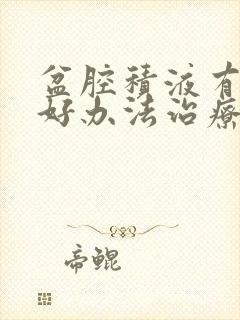 盆腔積液有
好办法治療
帝鲲